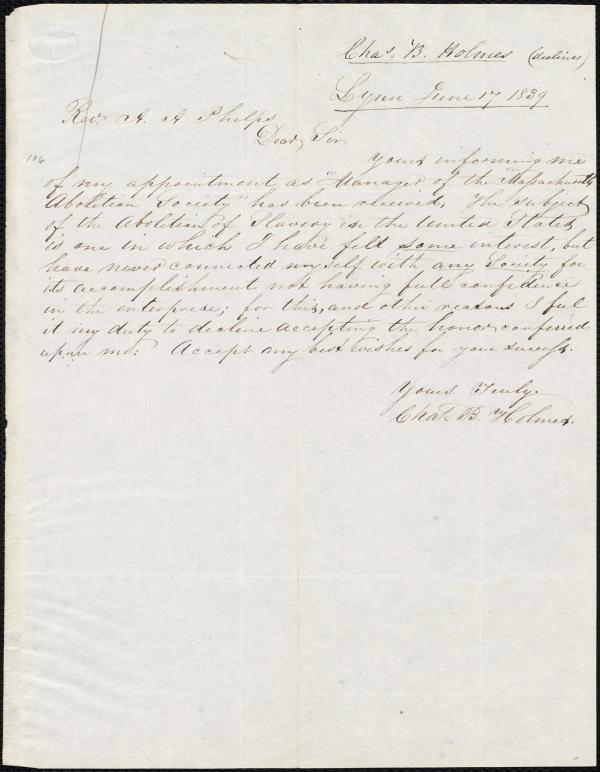 Chas. B. Holmes (declines)
Lynn June 17 1839
Rev. A. A Phelps
Dear Sir
106
Yours informing me
of my appointment as "Manager of the Massachusetts
Abolition Society" has been received, The subject
of the Abolition of Slavery in the United States
is one in which I have felt some interest, but
have never connected myself with any Society for
its accomplishment not having full confidence
in the enterprize; for this, and other reasons I feel
it my duty to decline accepting the honor conferred
upon me: Accept my best wishes for your success.
Yours Truly.
Chas. B. Holmes.